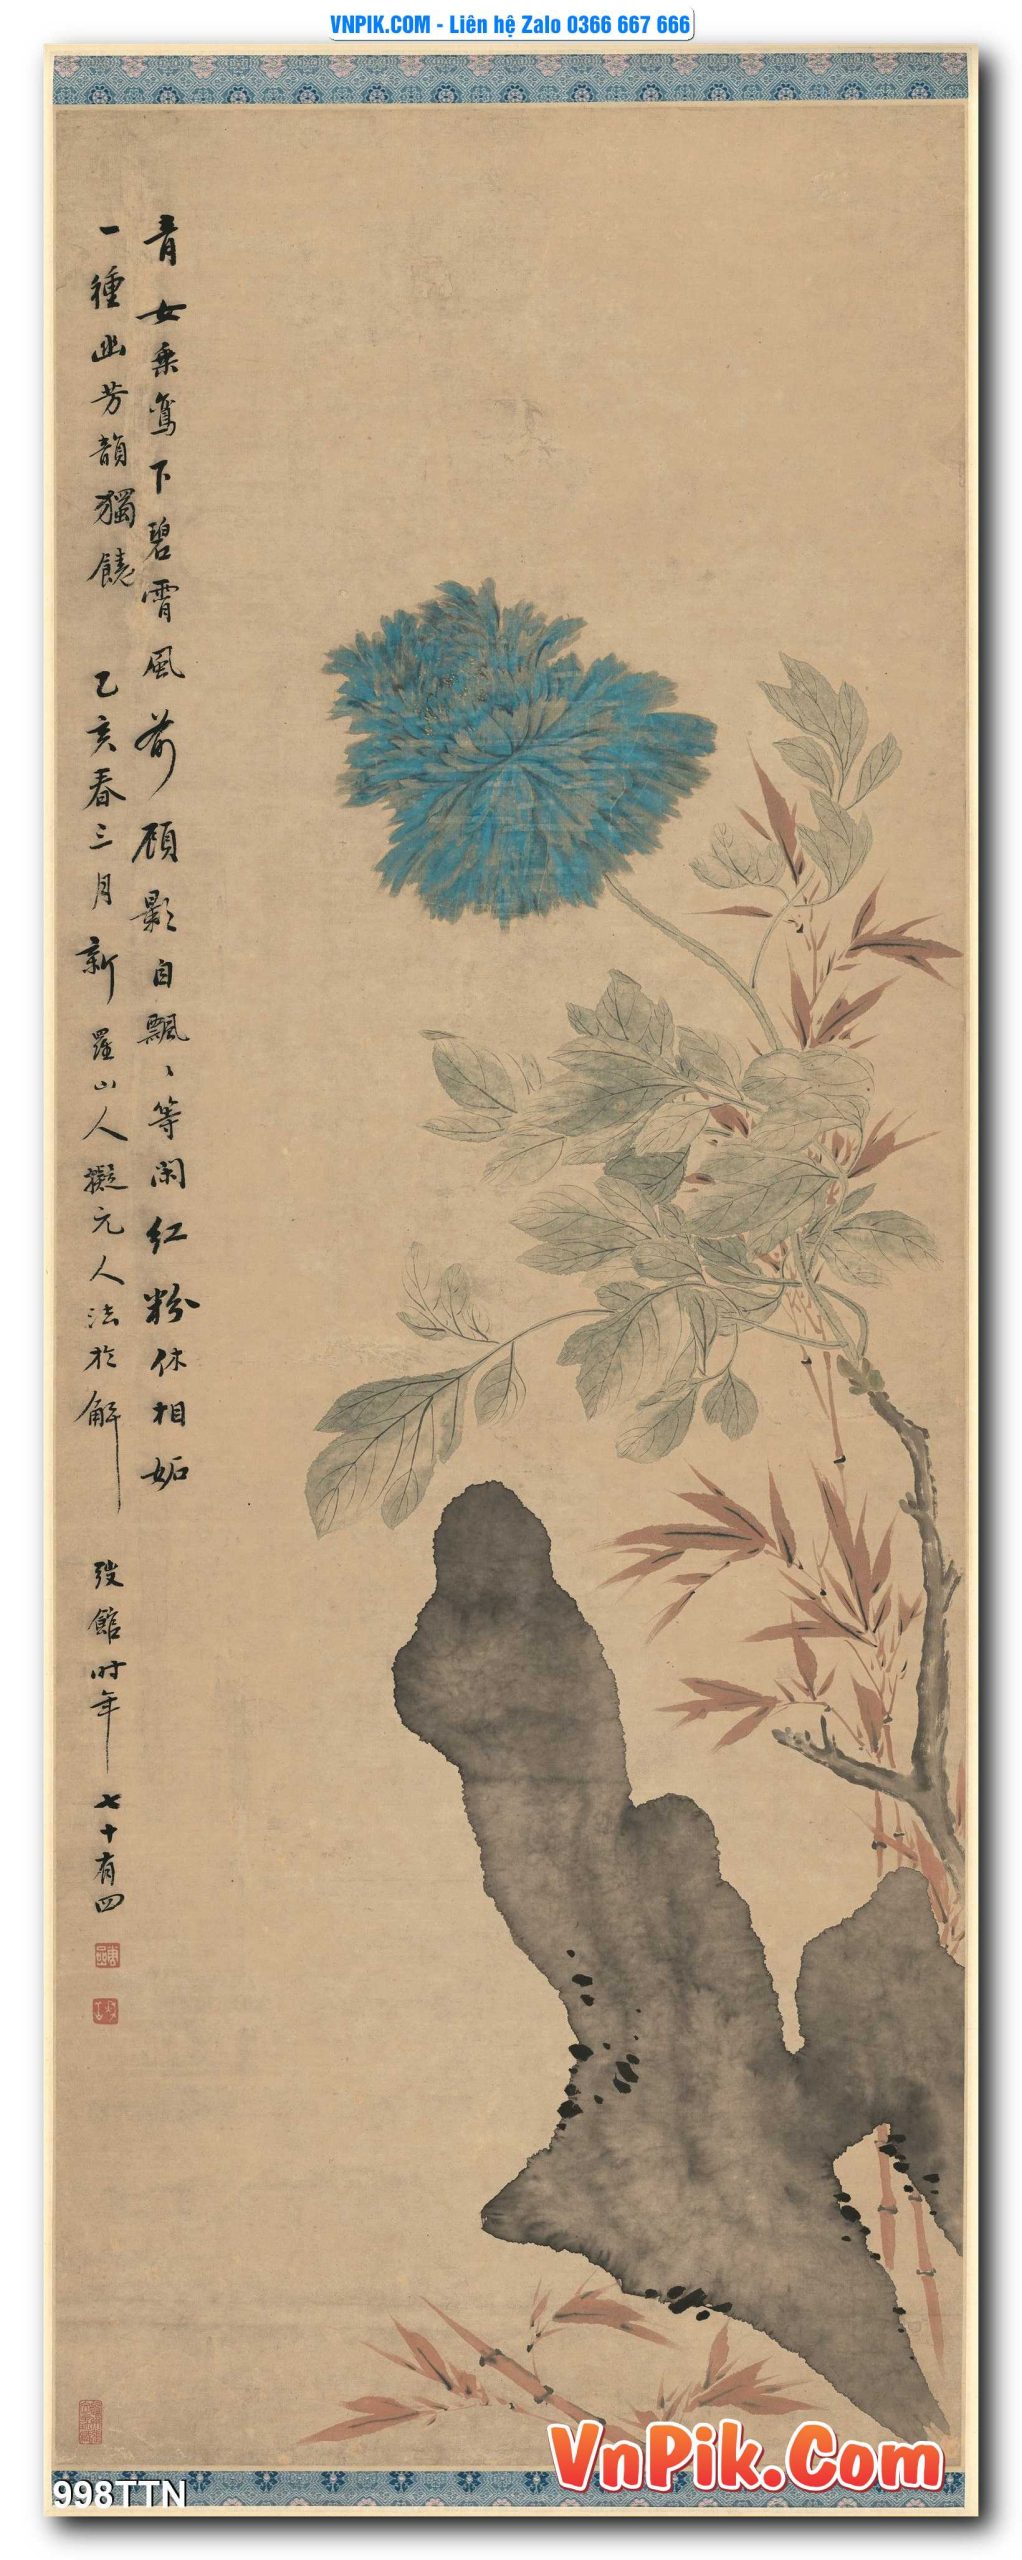 VNPIK.COM - Liên hệ Zalo 0366 667 666
青女乘鸞下碧霄風前顧影自飄〻等閑紅粉休相妬
一種幽芳韻獨饒 乙亥春三月新羅山人擬元人法於解
弢館時年七十有四
VnPik.Com
998TTN